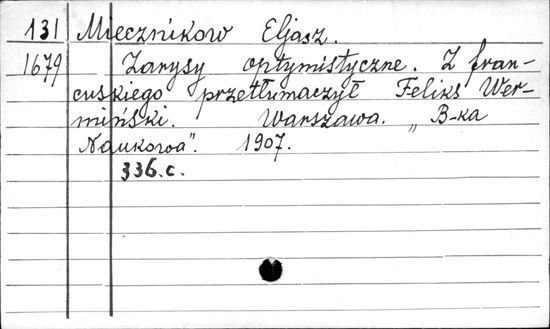 131 Miecznikow Eljasz.
1679 Zarysy optymistyczne. Z fran-
cuskiego przetłumaczył Feliks Wer-
miński. Warszawa. „B-ka
Naukowa". 1907.
336.c.